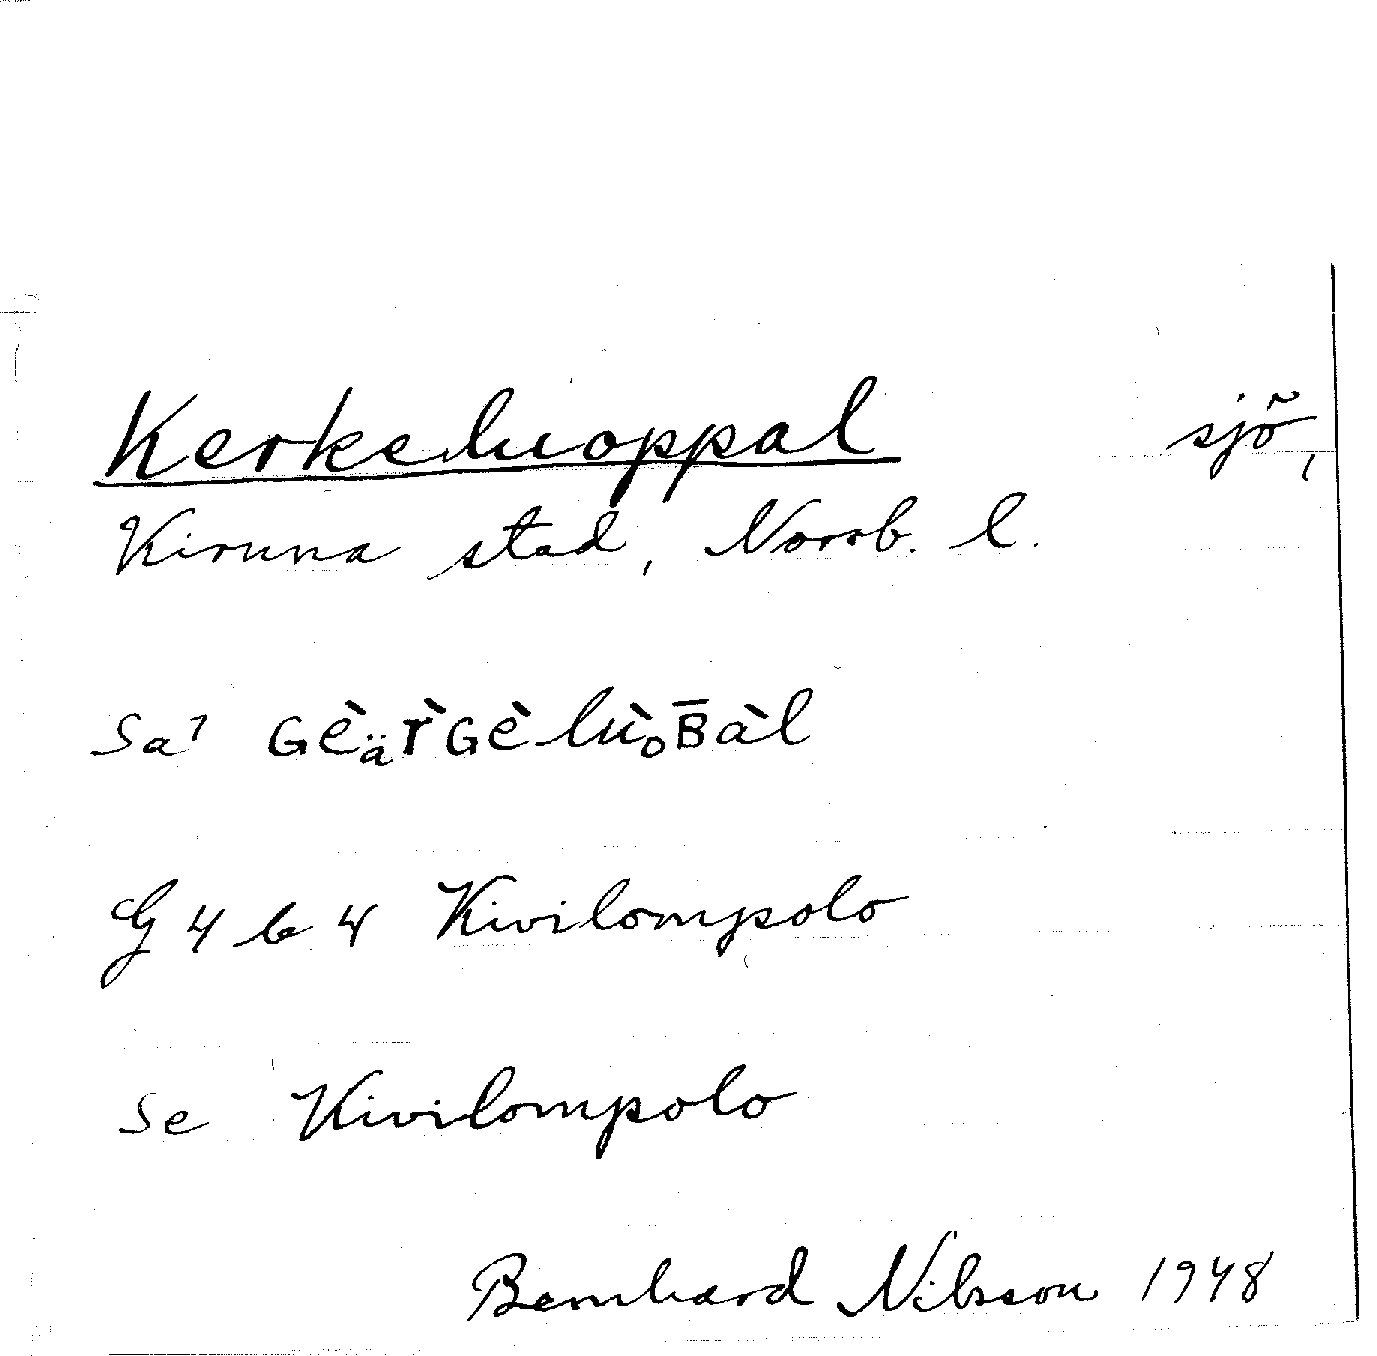 Kerkeluoppal sjö,
Kiruna stad, Norrb. l.
Sa¹ Gὲ̀ₐ̈r̀Gὲlùₒʙ̄àl
G 4 b 4 Kivilompolo
Se Kivilompolo
Bernhard Nilsson 1948